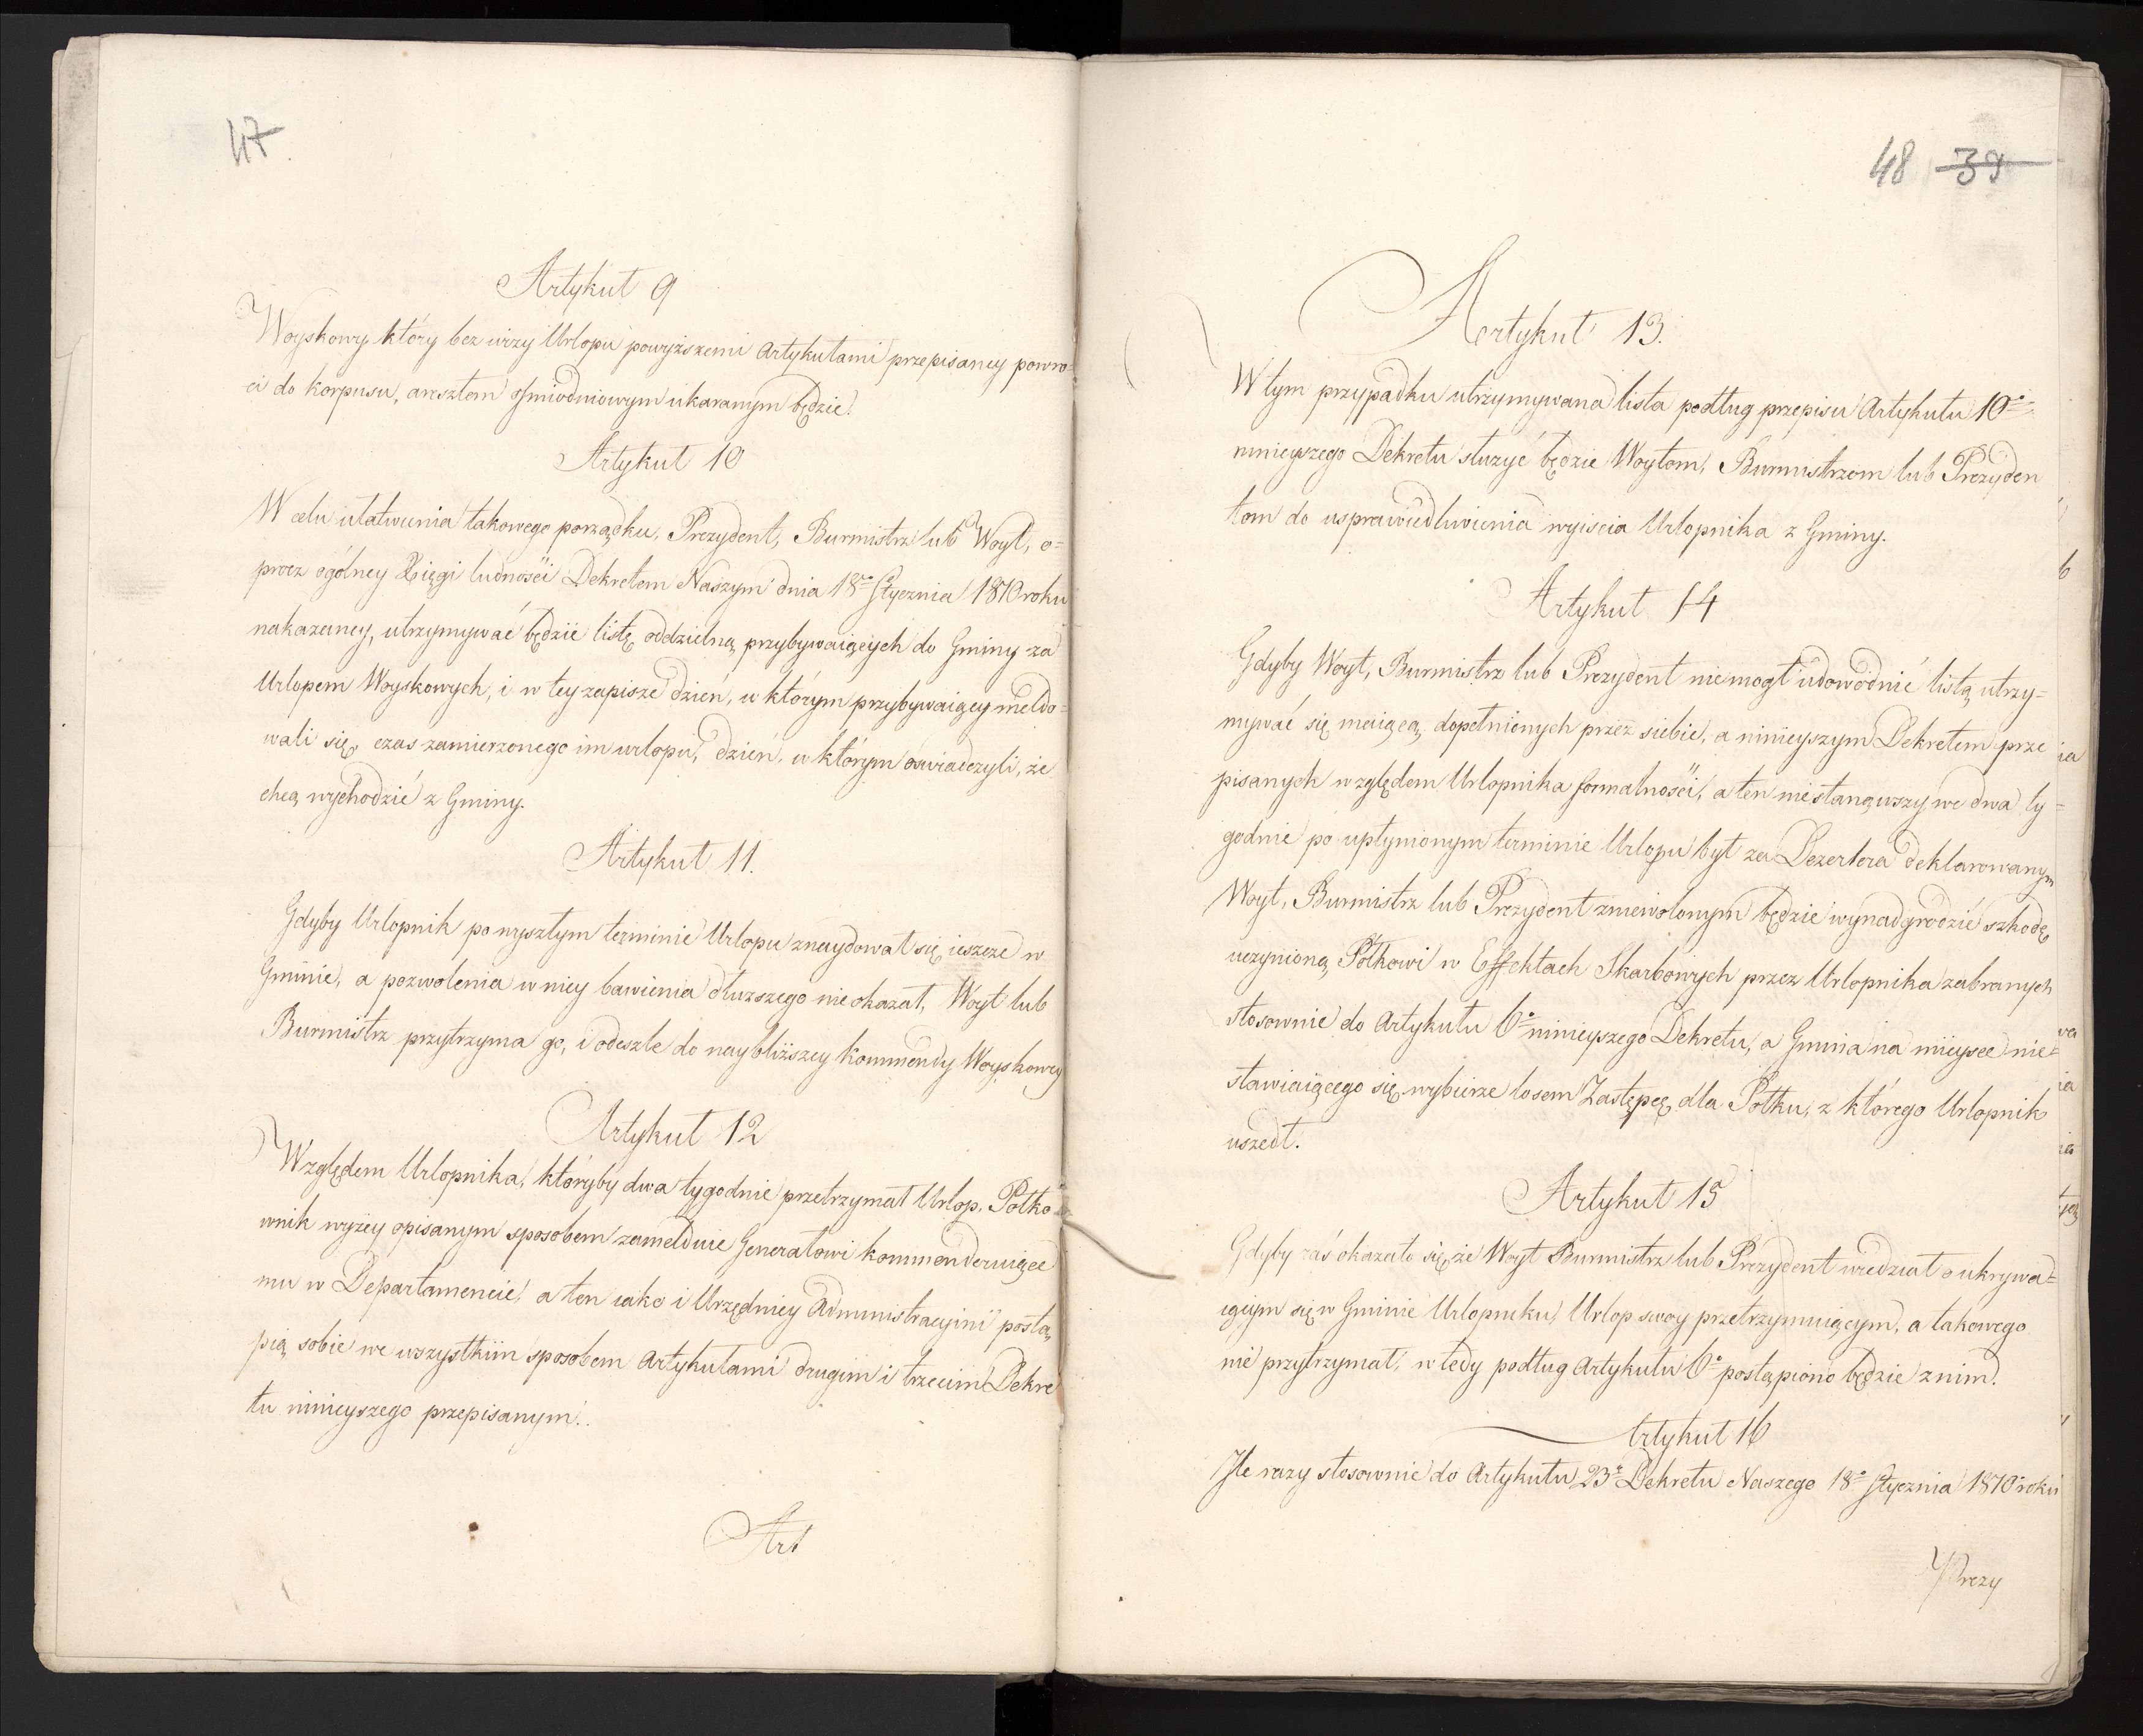 47.
Artykuł 9
Woyskowy który bez wizy Urlopu powyższemi Artykułami przepisaney powro=
ci do korpusu, aresztem ośmiodniowym ukaranym będzie.
Artykuł 10
W celu ułatwienia takowego porządku, Prezydent, Burmistrz lub Woyt, o=
procz ogólney Xięgi ludności Dekretem Naszym dnia 18go Stycznia 1810 roku
nakazaney, utrzymywać będzie listę oddzielną przybywaiących do Gminy za
Urlopem Woyskowych, i w tey zapisze dzień, w którym przybywaiący meldo=
wali się, czas zamierzonego im urlopu, dzień, w którym oświadczyli, że
chcą wychodzić z Gminy.
Artykuł 11.
Gdyby Urlopnik po wyszłym terminie Urlopu znaydował się ieszcze w
Gminie, a pozwolenia w niey bawienia dłuższego nie okazał, Woyt lub
Burmistrz przytrzyma go, i odeszle do naybliższey kommendy Woyskowey
Artykuł 12
Względem Urlopnika, któryby dwa tygodnie przetrzymał Urlop, Połko=
wnik wyżey opisanym sposobem zamelduie Generałowi kommenderuiące
mu w Departamencie, a ten iako i Urzędnicy Administracyini postą,
pią sobie we wszystkim sposobem Artykułami drugim i trzecim Dekre
tu ninieyszego przepisanym.
Art
48 39
Artykuł 13.
W tym przypadku utrzymywana lista podług przepisu Artykułu 10o
ninieyszego Dekretu służyć będzie Woytom, Burmistrzom lub Prezyden
tom do usprawiedliwienia wyiścia Urlopnika z Gminy.
Artykuł 14
Gdyby Woyt, Burmistrz lub Prezydent nie mogł udowodnić listą utrzy=
mywać się maiącą, dopełnionych przez siebie, a ninieyszym Dekretem prze
pisanych względem Urlopnika formalności, a ten nie stanąwszy we dwa ty=
godnie po upłynionym terminie Urlopu był za Dezertera deklarowanym
Woyt, Burmistrz lub Prezydent zniewolonym będzie wynadgrodzić szkodę
uczynioną Połkowi w Effektach Skarbowych przez Urlopnika zabranych
stosownie do Artykułu 6o ninieyszego Dekretu, a Gmina na mieysce nie=
stawiaiącego się wybierze losem Zastępcę dla Połku, z którego Urlopnik
uszedł.
Artykuł 15
Gdyby zaś okazało się, że Woyt Burmistrz lub Prezydent wiedział o ukrywa=
iącym się w Gminie Urlopniku, Urlop swoy przetrzymuiącym, a takowego
nie przytrzymał, w tedy podług Artykułu 6o postąpiono będzie z nim.
Artykuł 16
Ile razy stosownie do Artykułu 23o Dekretu Naszego 18o Stycznia 1810 roku
Prezy